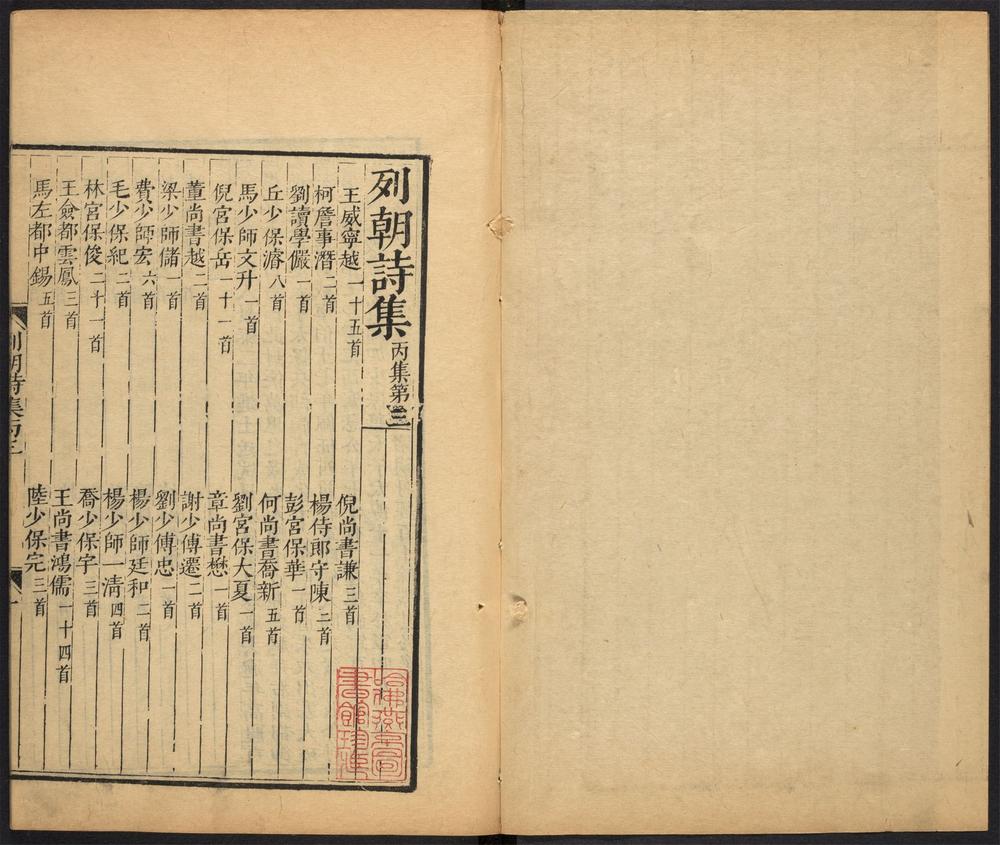 列朝詩集丙集第三
王威寧越一十五首 倪尚書謙三首
柯詹事潛二首 楊侍郎守陳三首
劉讀學儼一首 彭宮保華一首
丘少保濬八首 何尚書喬新五首
馬少師文升一首 劉宮保大夏一首
倪宮保岳一十一首 章尚書懋一首
董尚書越二首 謝少傅遷二首
梁少師儲一首 劉少傅忠一首
費少師宏六首 楊少師廷和二首
毛少保紀二首 楊少師一清四首
林宮保俊二十一首 喬少保宇三首
王僉都雲鳳三首 王尚書鴻儒一十四首
馬左都中錫五首 陸少保完三首
列朝詩集丙三
一
哈佛燕京圖書館珍藏印